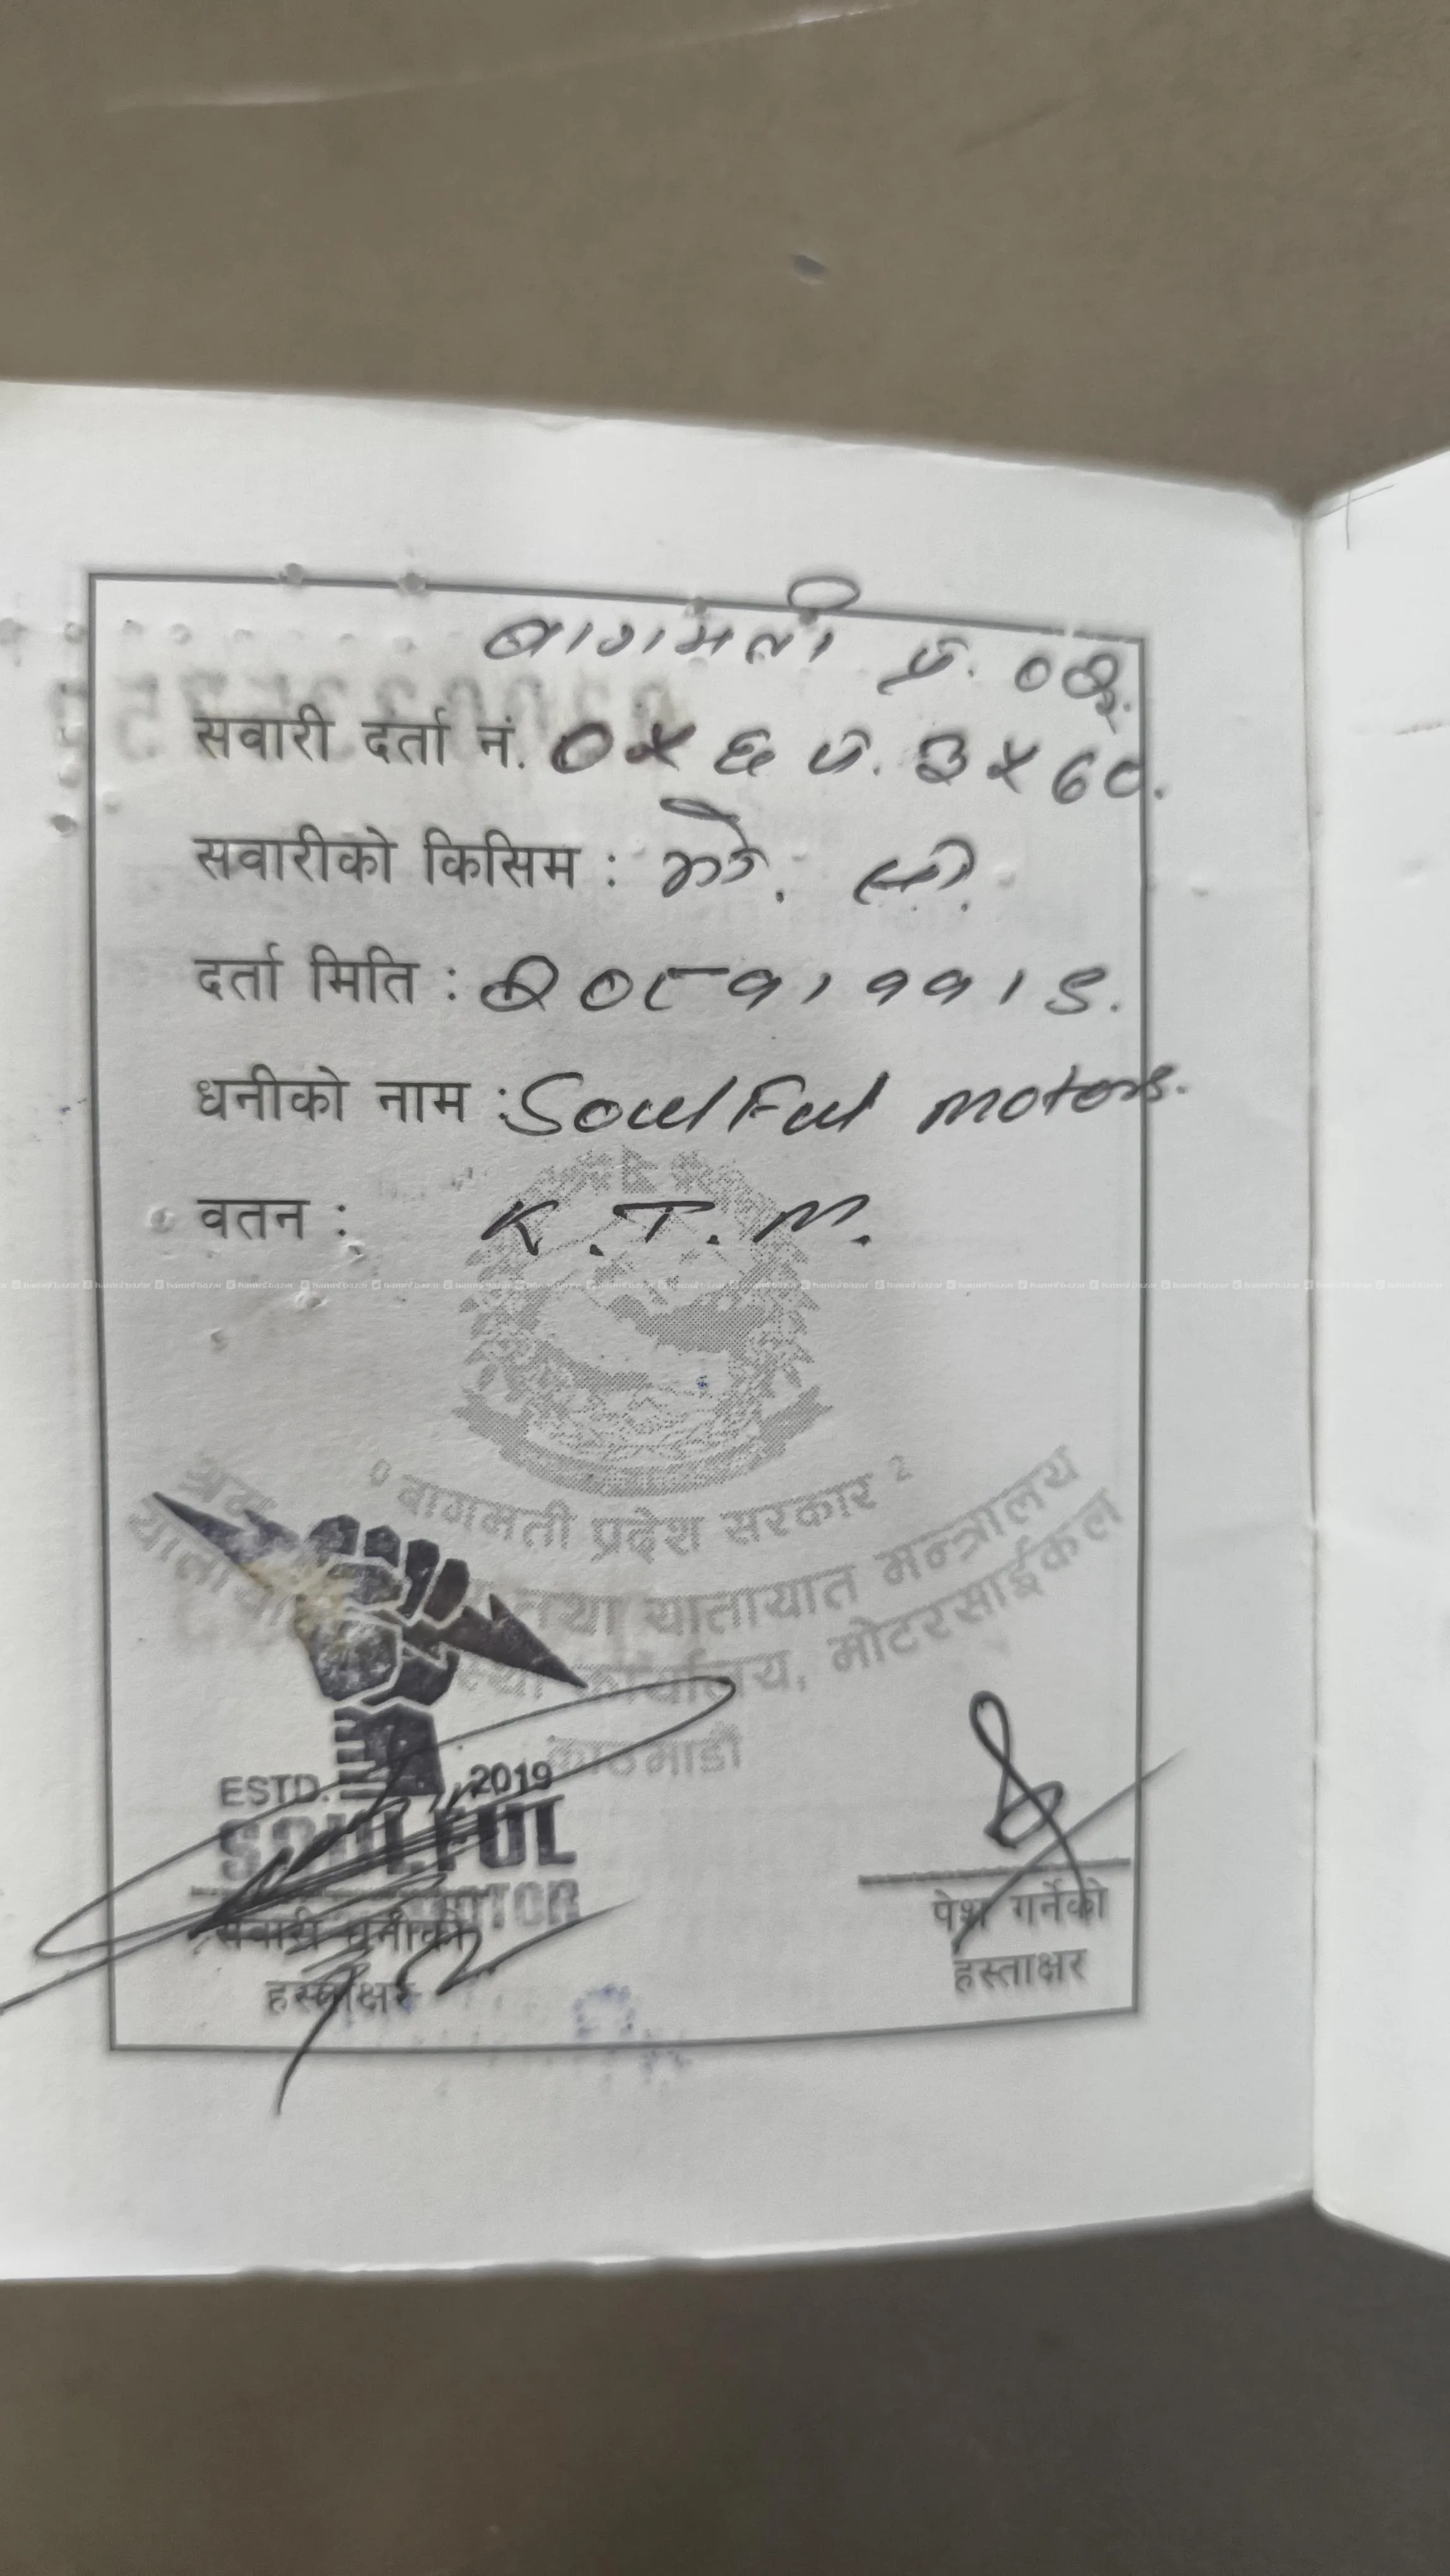 बागमती प्र. ०२
सवारी दर्ता नं. ०५६ प. ३५६८.
सवारीको किसिम : मो. सा.
दर्ता मिति : २०८१।११।९.
धनीको नाम : Soulful motors.
वतन : K.T.M.
बागमती प्रदेश सरकार
श्रम तथा यातायात मन्त्रालय
कार्यालय, मोटरसाईकल
काठमाडौं
ESTD. 2019
SOULFUL
MOTOR
सवारी धनीको
हस्ताक्षर
पेश गर्नेको
हस्ताक्षर